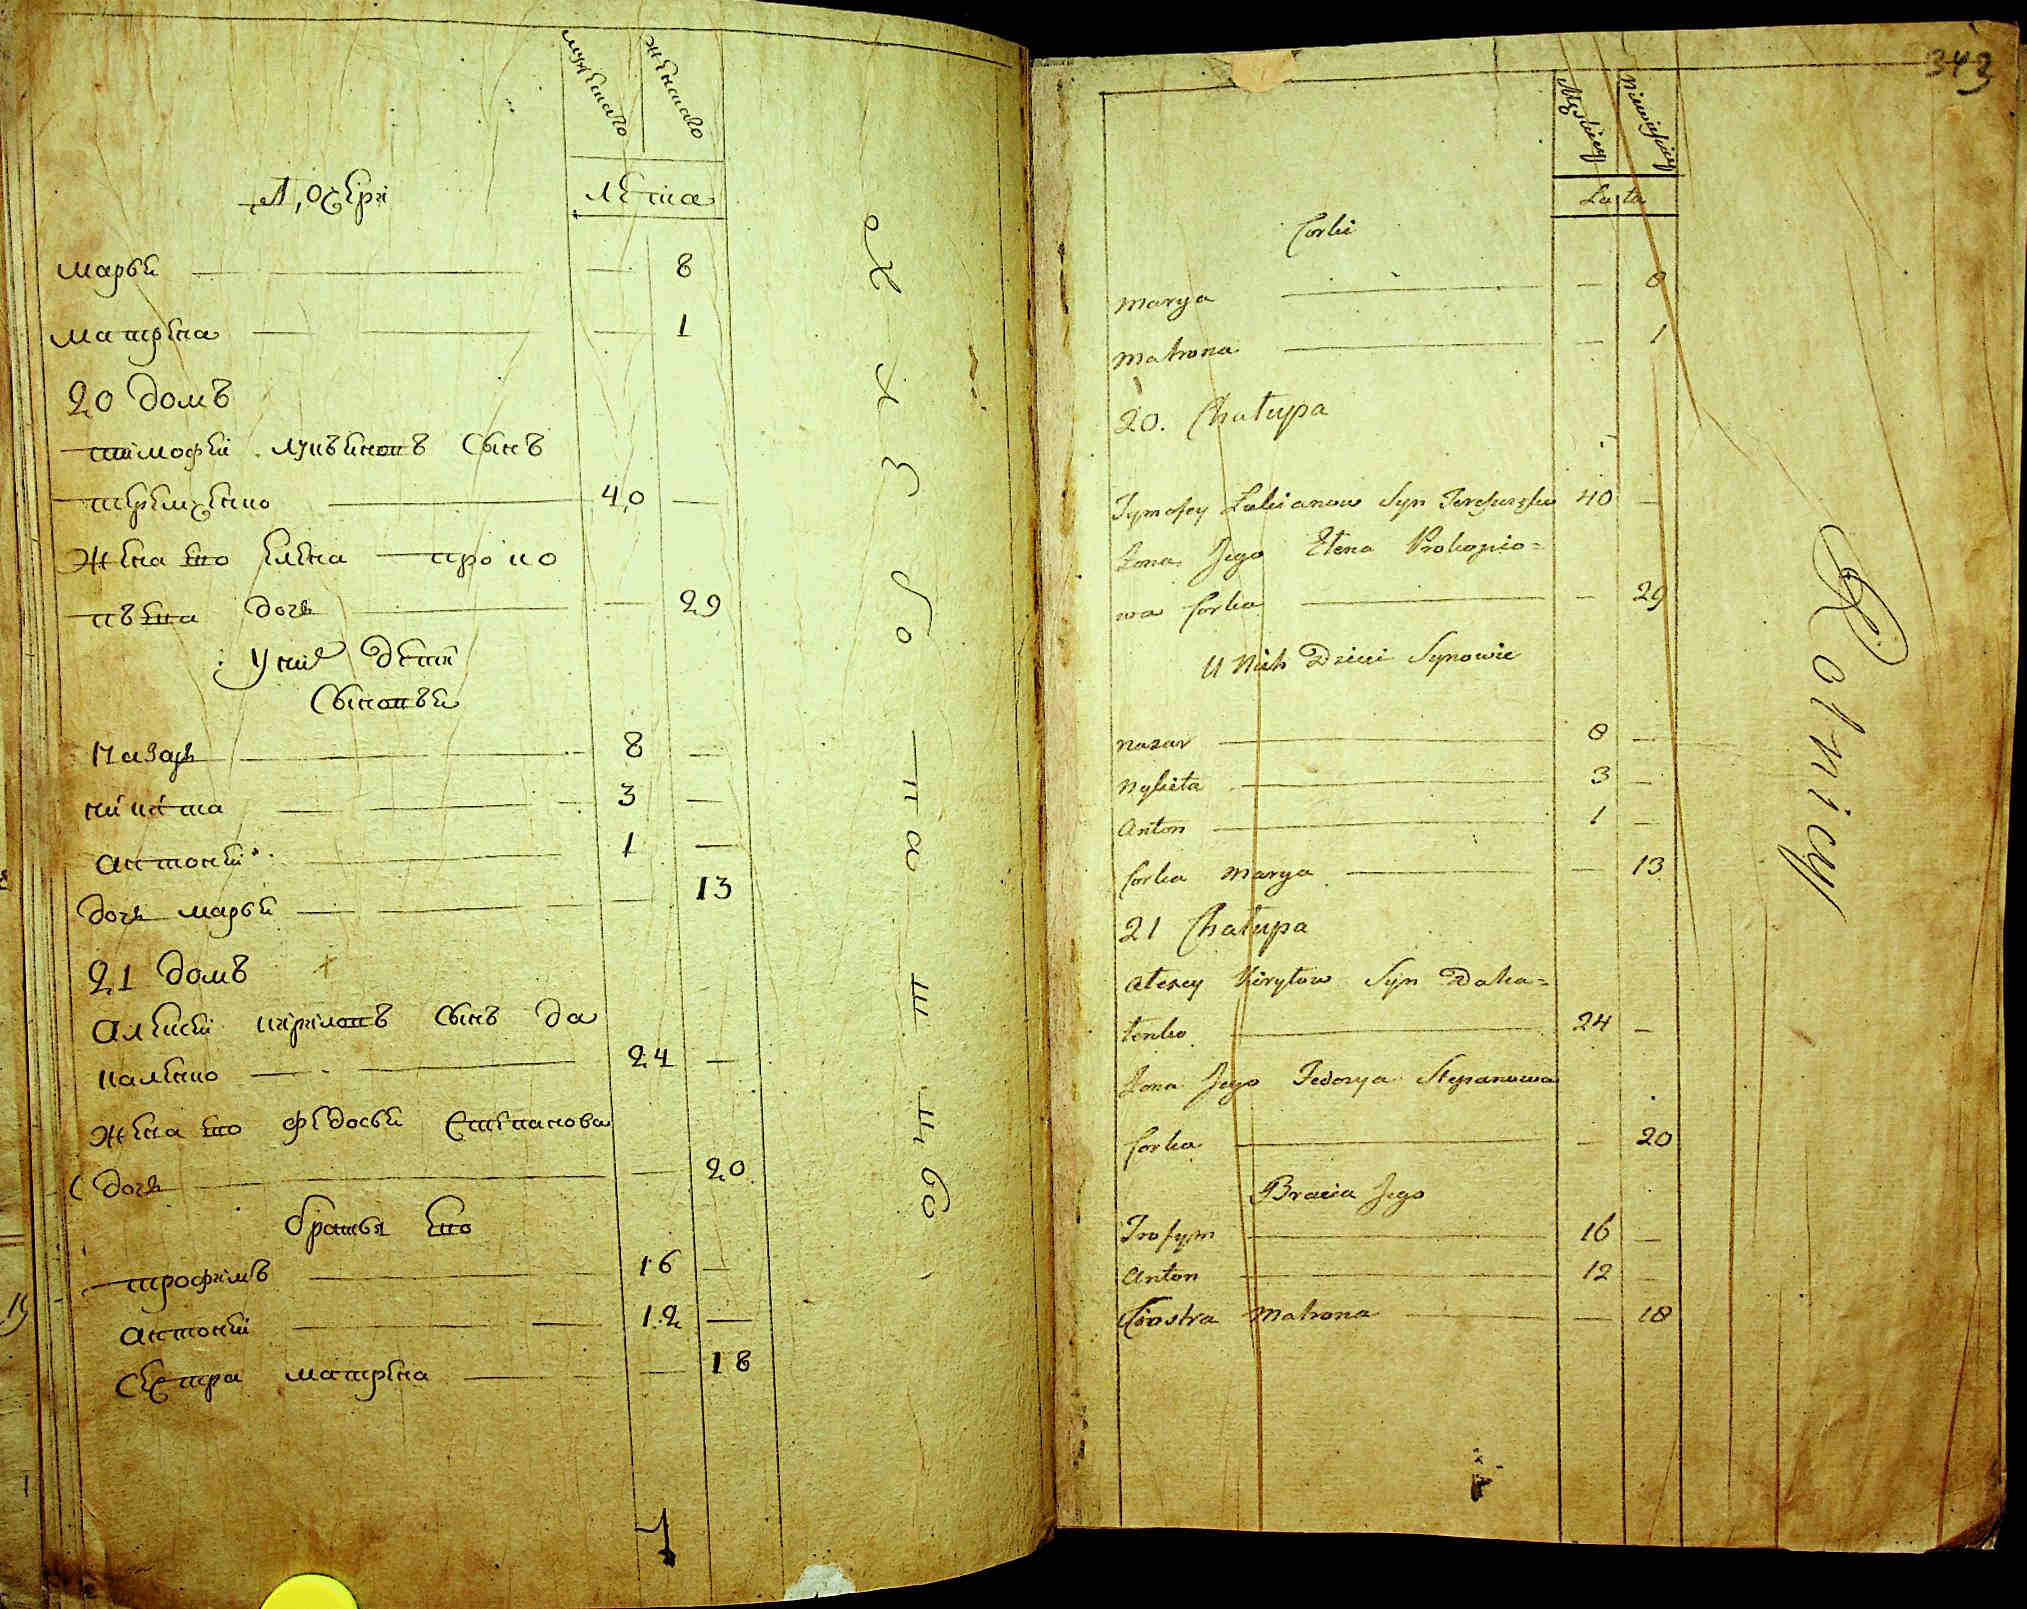 мужескаго
женскаго
Дочери
Лета
Марья 8
Матрена 1
20 домъ
Тимофей Лукьяновъ Сынъ
40
Жена ево Елена проко
пьева дочь 29
У них дети
Сыновья
Назаръ 8
никита 3
Антоней 1
дочь марья 13
21 домъ
Алексей кириловъ Сынъ да
каленко 24
Жена ево Федосья Степанова
дочь 20
братья ево
трофимъ 16
Антоней 12
Сестра матрена 18
343
Męskiey
Niewieściey
Lata
Corki
Marya 8
Matrona 1
20. Chałupa
Tymofey Łukianow Syn 40
Zona Jego Elena Prokopio=
wa Corka 29
U Nich Dzieci Synowie
Nazar 8
Nykita 3
Anton 1
Corka Marya 13
21 Chałupa
Alexey Kiryłow Syn Daka=
lenko 24
Zona Jego Fedosya Stepanowa
Corka 20
Bracia Jego
Trofym 16
Anton 12
Siostra Matrona 18
Rolnicy